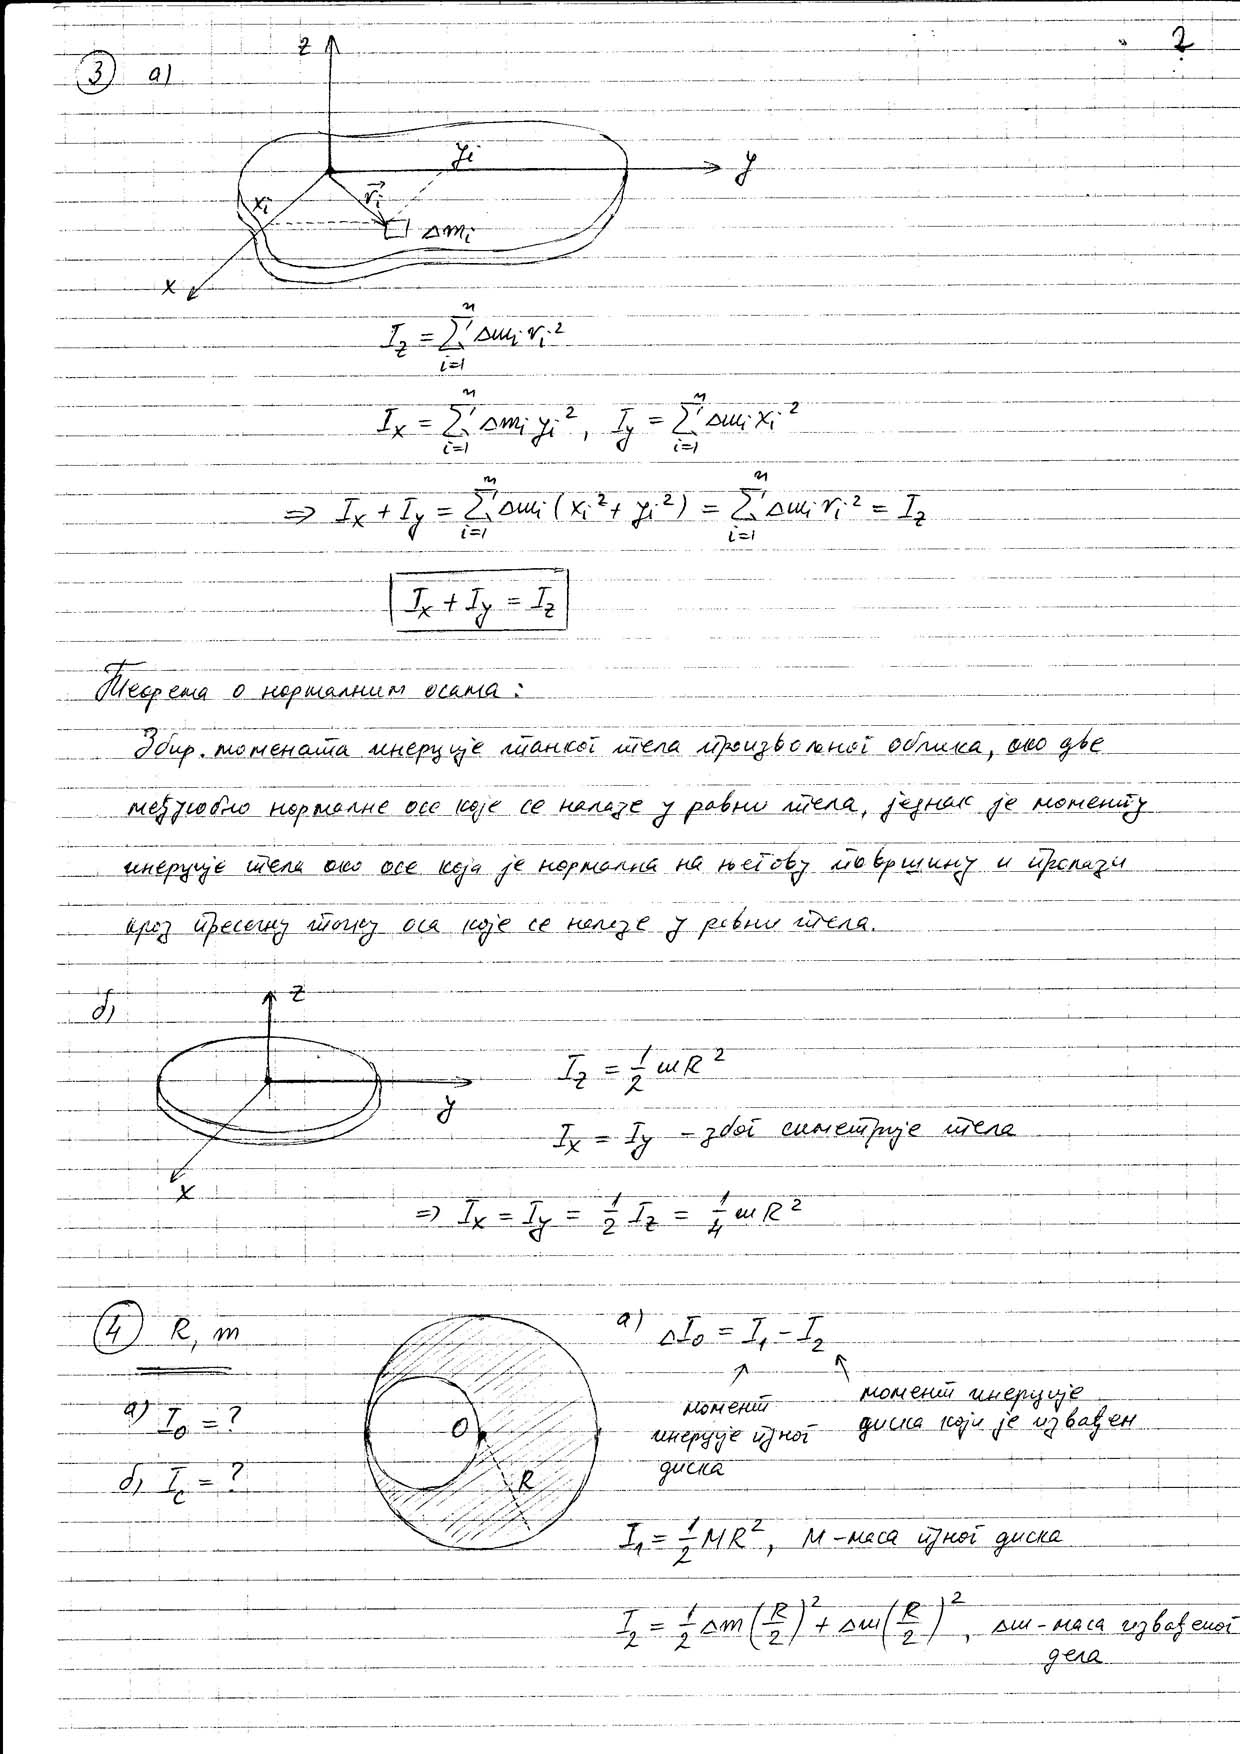 2
③ а)
z
y
x
xᵢ
yᵢ
r⃗ᵢ
Δmᵢ
I_z = ∑_{i=1}^{n} Δmᵢ rᵢ²
I_x = ∑_{i=1}^{n} Δmᵢ yᵢ², I_y = ∑_{i=1}^{n} Δmᵢ xᵢ²
⇒ I_x + I_y = ∑_{i=1}^{n} Δmᵢ (xᵢ² + yᵢ²) = ∑_{i=1}^{n} Δmᵢ rᵢ² = I_z
I_x + I_y = I_z
Теорема о нормалним осама:
Збир момената инерције танког тела произвољног облика, око две
међусобно нормалне осе које се налазе у равни тела, једнак је моменту
инерције тела око осе која је нормална на његову површину и пролази
кроз пресечну тачку оса које се налазе у равни тела.
б)
z
y
x
I_z = 1/2 mR²
I_x = I_y - због симетрије тела
⇒ I_x = I_y = 1/2 I_z = 1/4 mR²
④ R, m
а) I₀ = ?
б) I_c = ?
O
R
а) ΔI₀ = I₁ - I₂
момент
инерције пуног
диска
момент инерције
диска који је извађен
I₁ = 1/2 MR², M - маса пуног диска
I₂ = 1/2 Δm(R/2)² + Δm(R/2)², Δm - маса извађеног
дела